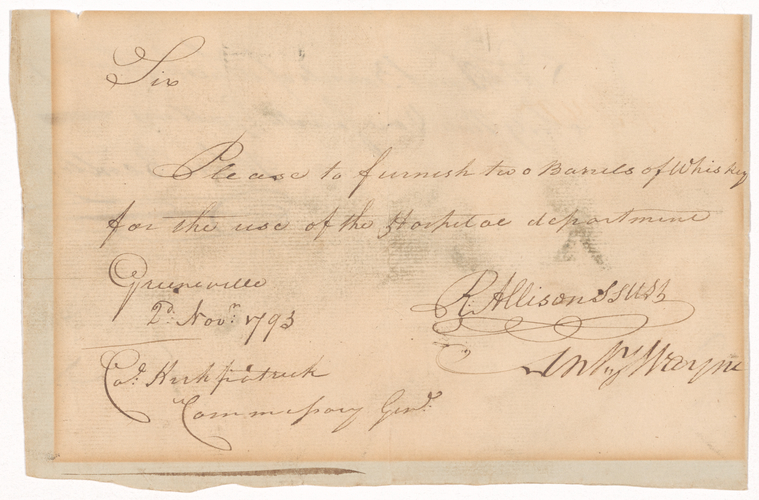 Sir
Please to furnish two Barrels of Whiskey
for the use of the Hospital department
Greeneville
2d. Novr. 1793
R: Allison SSUSL
Anty Wayne
Col. Kirkpatrick
Commissary Genl.